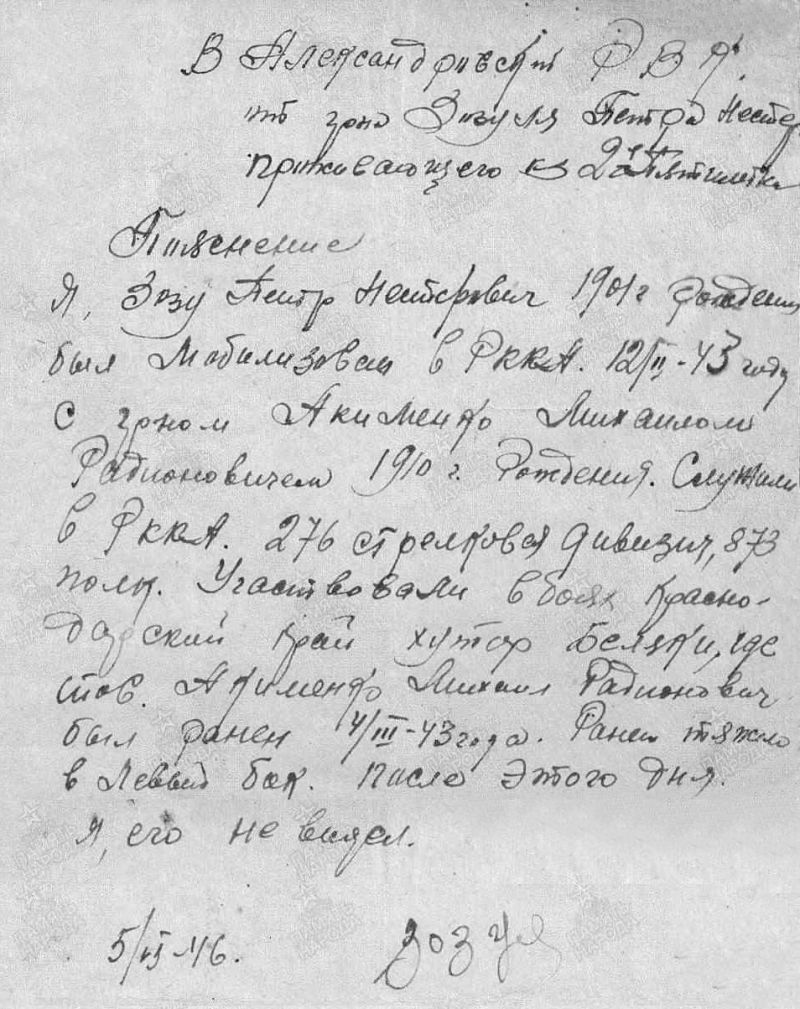 В Александровский РВК.
от грна Зозуля Петра Нестер
проживающего в 2ая Пятилетка
Пояснение
Я, Зозу Петр Нестерович 1901 г Рождения
был Мобилизован в РККА. 12/II-43 году
с грном Акименко Михаилом
Радионовичем 1910 г. Рождения. Служили
в РККА. 276 стрелковая дивизия, 873
полк. Участвовали в боях Красно-
дарский край хутор Беляки, где
тов. Акименко Михаил Радионович
был ранен 4/III-43 года. Ранен тяжело
в Леввый бок. После этого дня.
Я, его не видел.
5/ -46. Зозуля